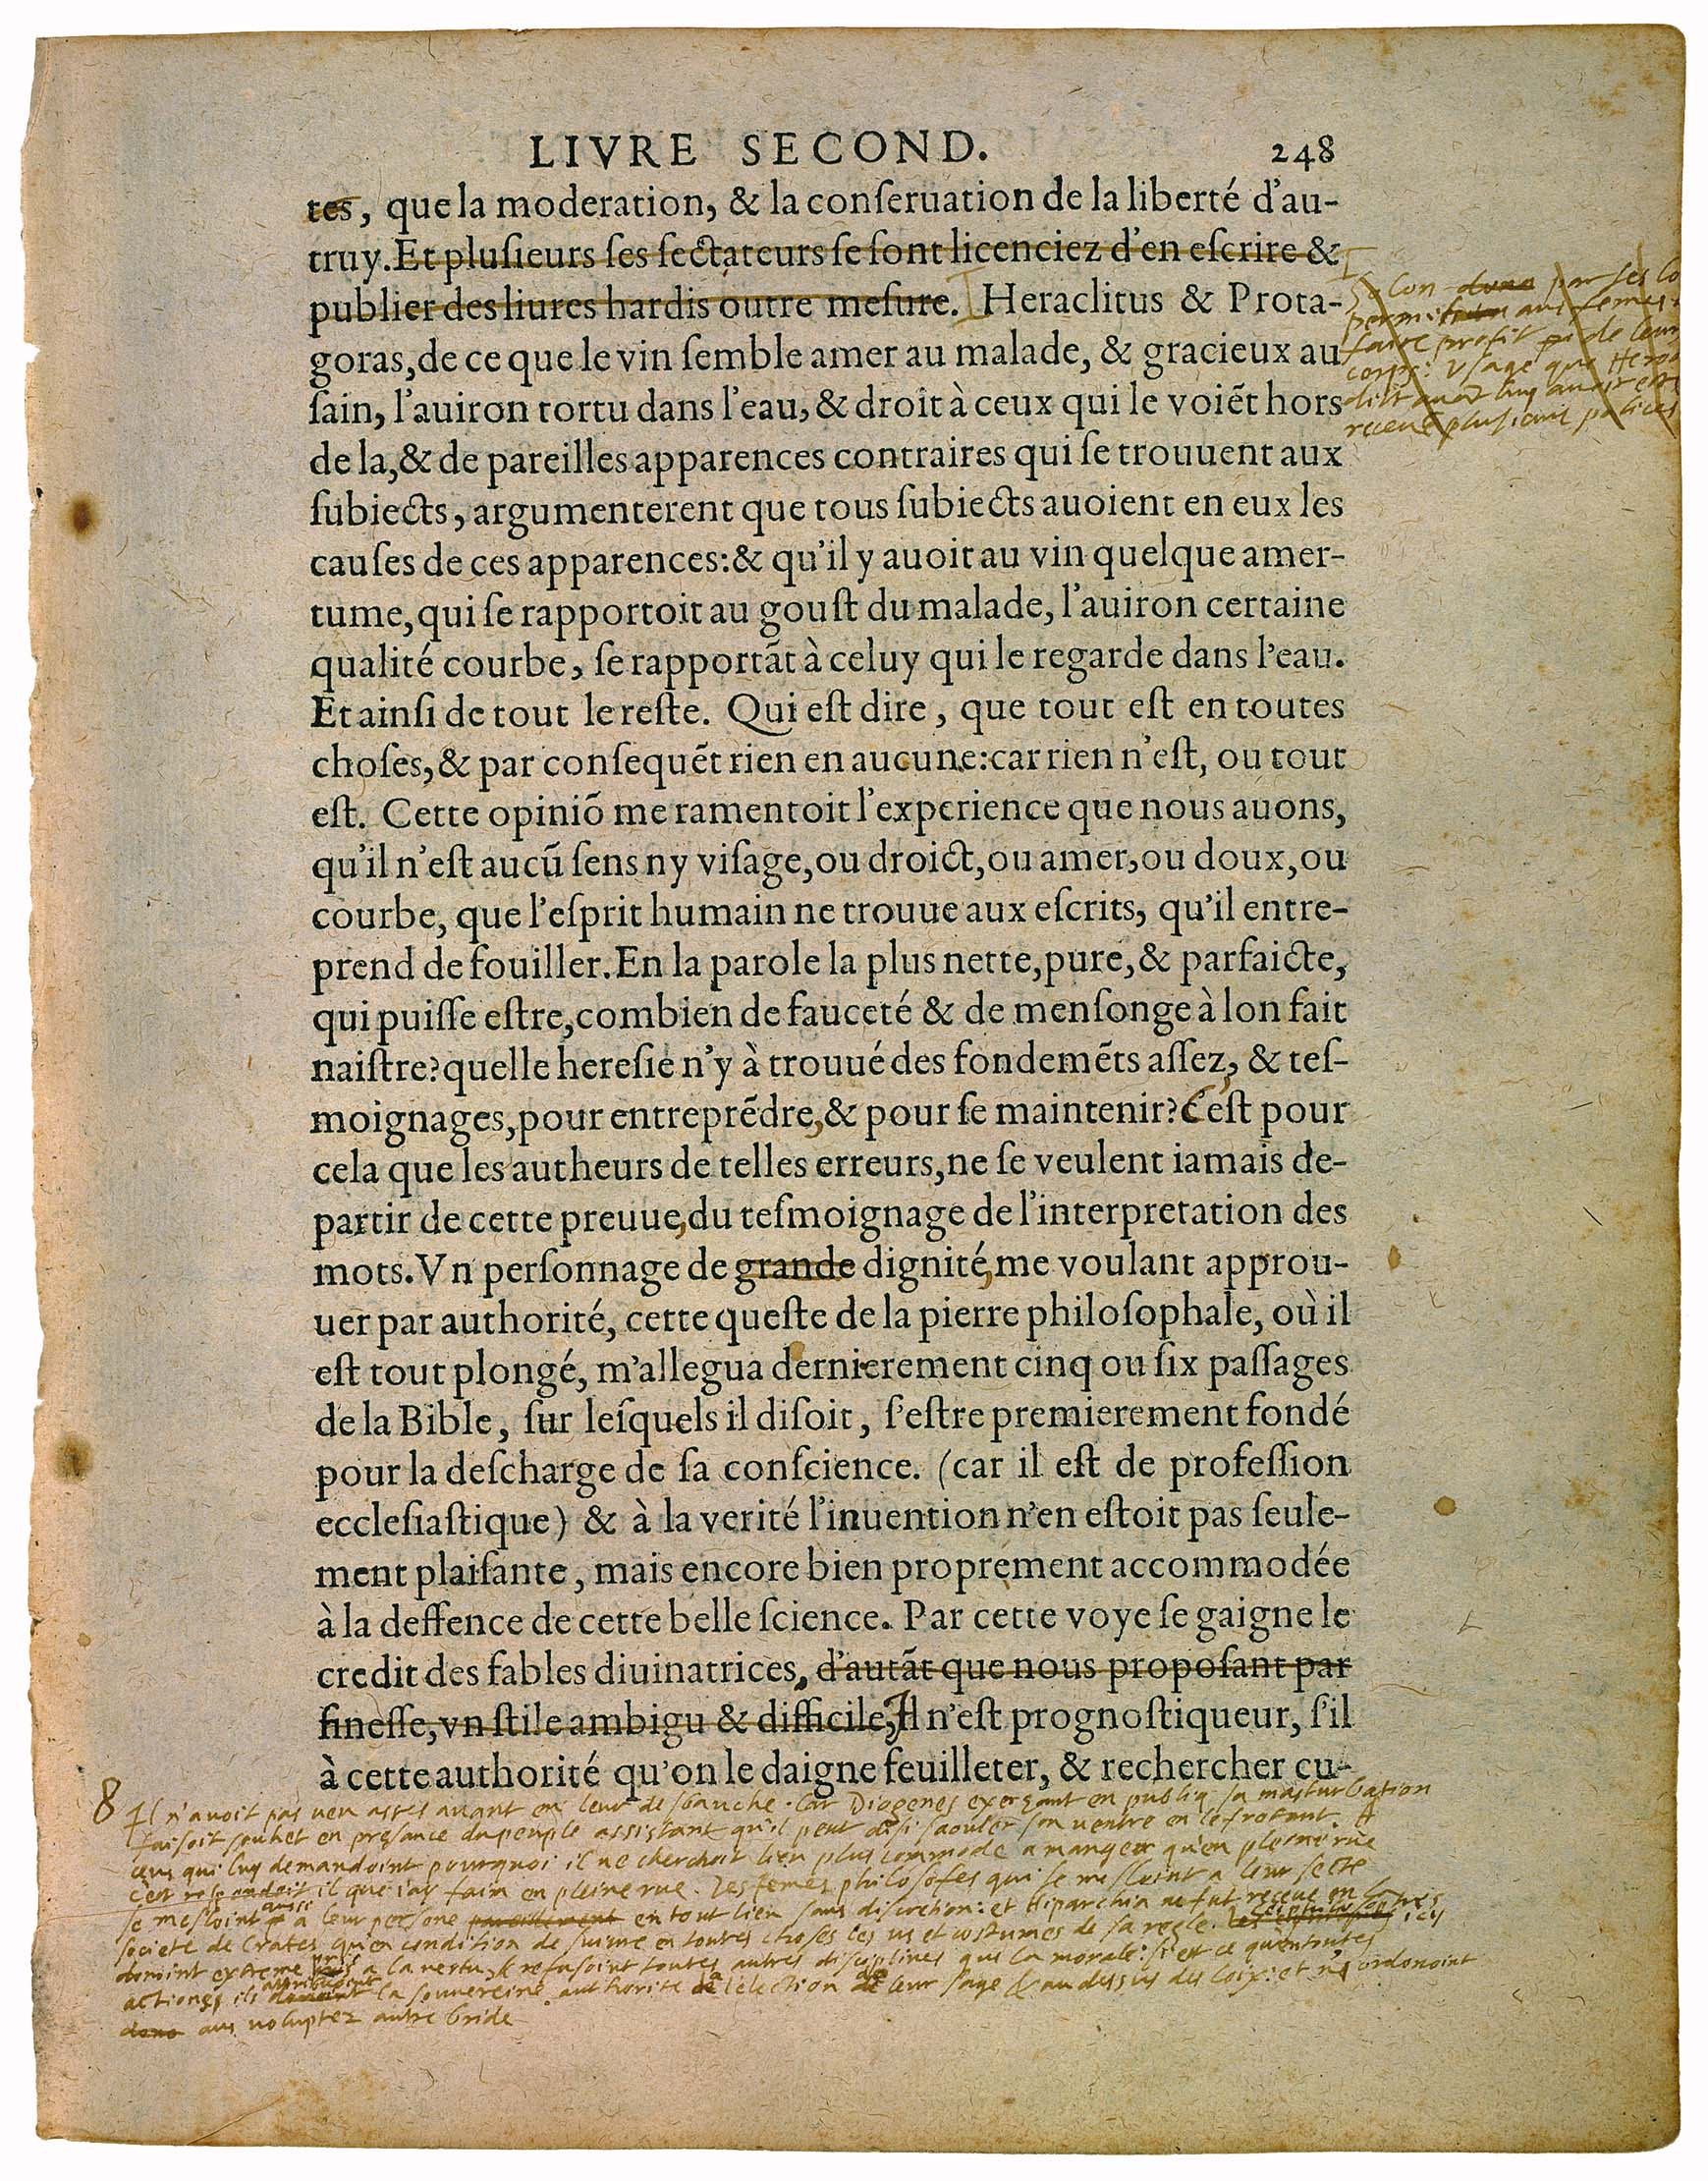 LIVRE SECOND. 248
tes, que la moderation, & la conſeruation de la liberté d'au-
truy. Et pluſieurs ſes ſectateurs ſe ſont licenciez d'en eſcrire &
publier des liures hardis outre meſure. Heraclitus & Prota-
goras, de ce que le vin ſemble amer au malade, & gracieux au
ſain, l'auiron tortu dans l'eau, & droit à ceux qui le voiẽt hors
de la, & de pareilles apparences contraires qui ſe trouuent aux
ſubiects, argumenterent que tous ſubiects auoient en eux les
cauſes de ces apparences: & qu'il y auoit au vin quelque amer-
tume, qui ſe rapportoit au gouſt du malade, l'auiron certaine
qualité courbe, ſe rapportãt à celuy qui le regarde dans l'eau.
Et ainſi de tout le reſte. Qui eſt dire, que tout eſt en toutes
choſes, & par conſequẽt rien en aucune: car rien n'eſt, ou tout
eſt. Cette opiniõ me ramentoit l'experience que nous auons,
qu'il n'eſt aucũ ſens ny viſage, ou droict, ou amer, ou doux, ou
courbe, que l'eſprit humain ne trouue aux eſcrits, qu'il entre-
prend de fouiller. En la parole la plus nette, pure, & parfaicte,
qui puiſſe eſtre, combien de fauceté & de menſonge à lon fait
naiſtre? quelle hereſie n'y à trouué des fondemẽts aſſez, & teſ-
moignages, pour entreprẽdre, & pour ſe maintenir? C'eſt pour
cela que les autheurs de telles erreurs, ne ſe veulent iamais de-
partir de cette preuue, du teſmoignage de l'interpretation des
mots. Vn perſonnage de grande dignité, me voulant approu-
uer par authorité, cette queſte de la pierre philoſophale, où il
eſt tout plongé, m'allegua dernierement cinq ou ſix paſſages
de la Bible, ſur leſquels il diſoit, ſ'eſtre premierement fondé
pour la deſcharge de ſa conſcience. (car il eſt de profeſſion
eccleſiaſtique) & à la verité l'inuention n'en eſtoit pas ſeule-
ment plaiſante, mais encore bien proprement accommodée
à la deffence de cette belle ſcience. Par cette voye ſe gaigne le
credit des fables diuinatrices, d'autãt que nous propoſant par
fineſſe, vn ſtile ambigu & difficile, Il n'eſt prognoſtiqueur, ſ'il
à cette authorité qu'on le daigne feuilleter, & rechercher cu-
Solon par ses lo
aus femes
faire profit de leur
corps: usage que Hero
dict avant luy avoir este
receu plusieurs polices
8 Il n'avoit pas veu asses avant en leur desbauche. Car Diogenes exerçant en publiq sa masturbation
faisoit souhet en presance du peuple assistant qu'il peut ainsi saouler son ventre en le frotant. A
ceus qui luy demandoint pourquoi il ne cherchoit lieu plus commode a manger qu'en pleine rue
c'est respondoit il que i'ay faim en pleine rue. Les femes philosofes qui se mesloint a leur secte
se mesloint aussi a leur persone en tout lieu sans discretion: et Hiparchia ne fut receue en la
societe de Crates qu'en condition de suivre en toutes choses les us et costumes de sa regle. Ces philosophes icy
donoint extreme pris a la vertu & refusoint toutes autres disciplines que la morale: si est ce qu'en toutes
actions ils attribuoint la souvereine authorite a l'election de leur sage & au dessus des loix: et n'ordonoint
aus voluptez autre bride